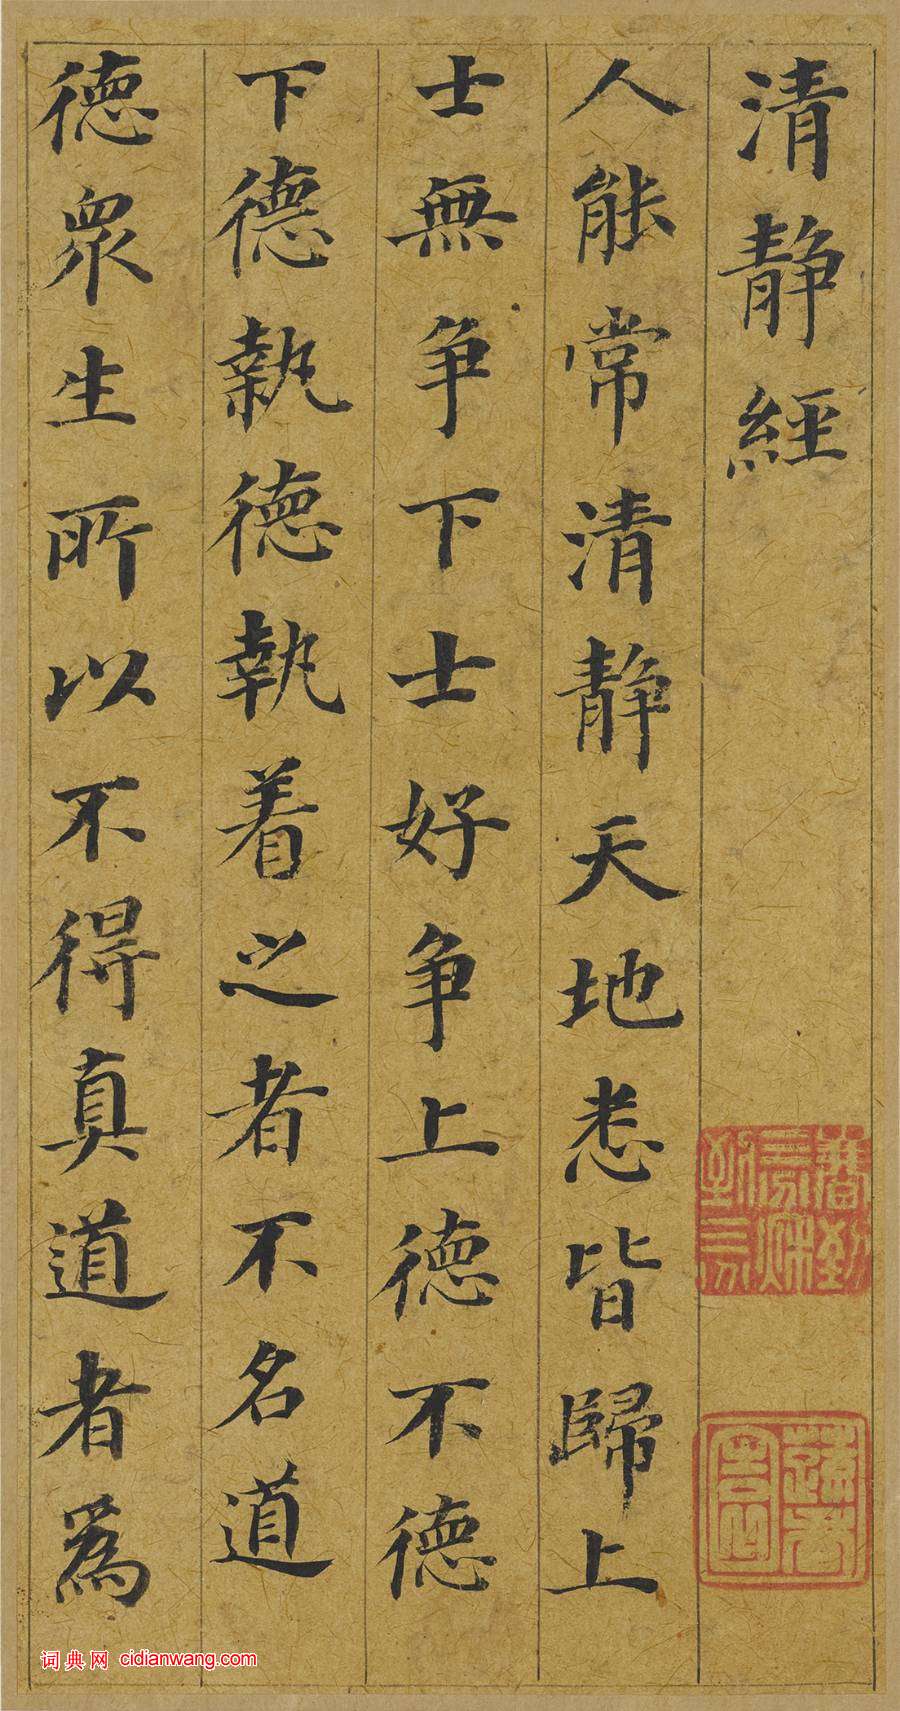 清静經
人能常清静天地悉皆歸上
士無争下士好争上德不德
下德執德執着之者不名道
德衆生所以不得真道者爲
词典网 cidianwang.com